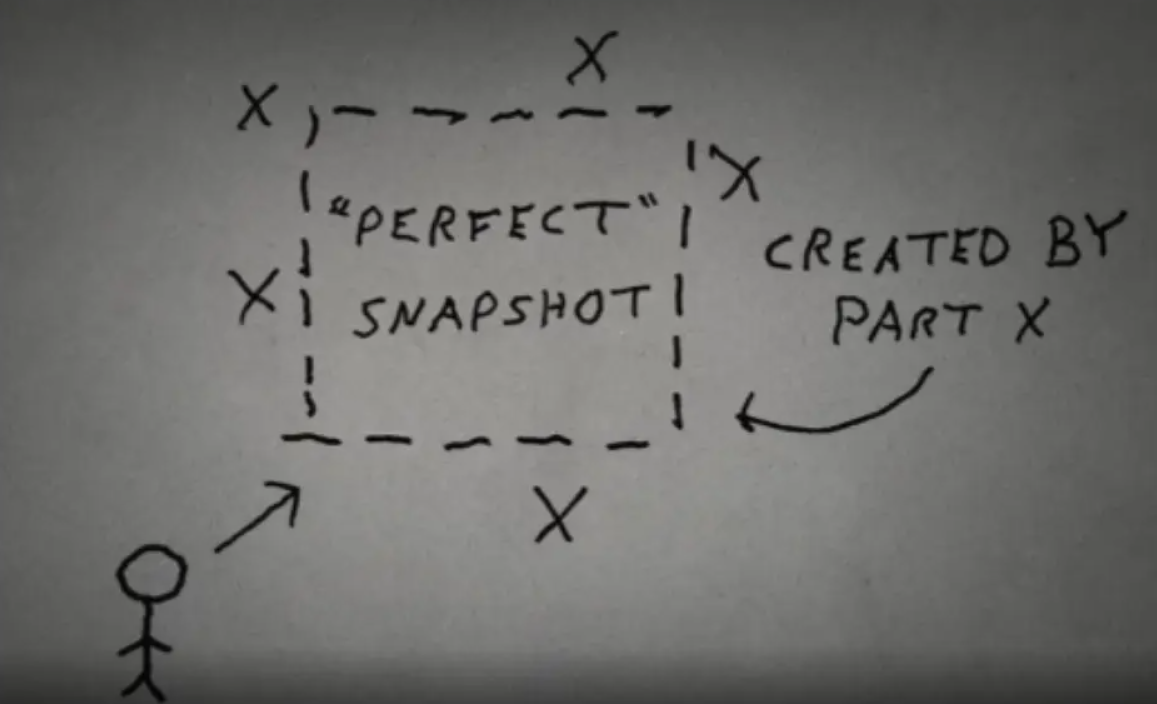 X
X
X
"PERFECT"
SNAPSHOT
X
CREATED BY
PART X
X